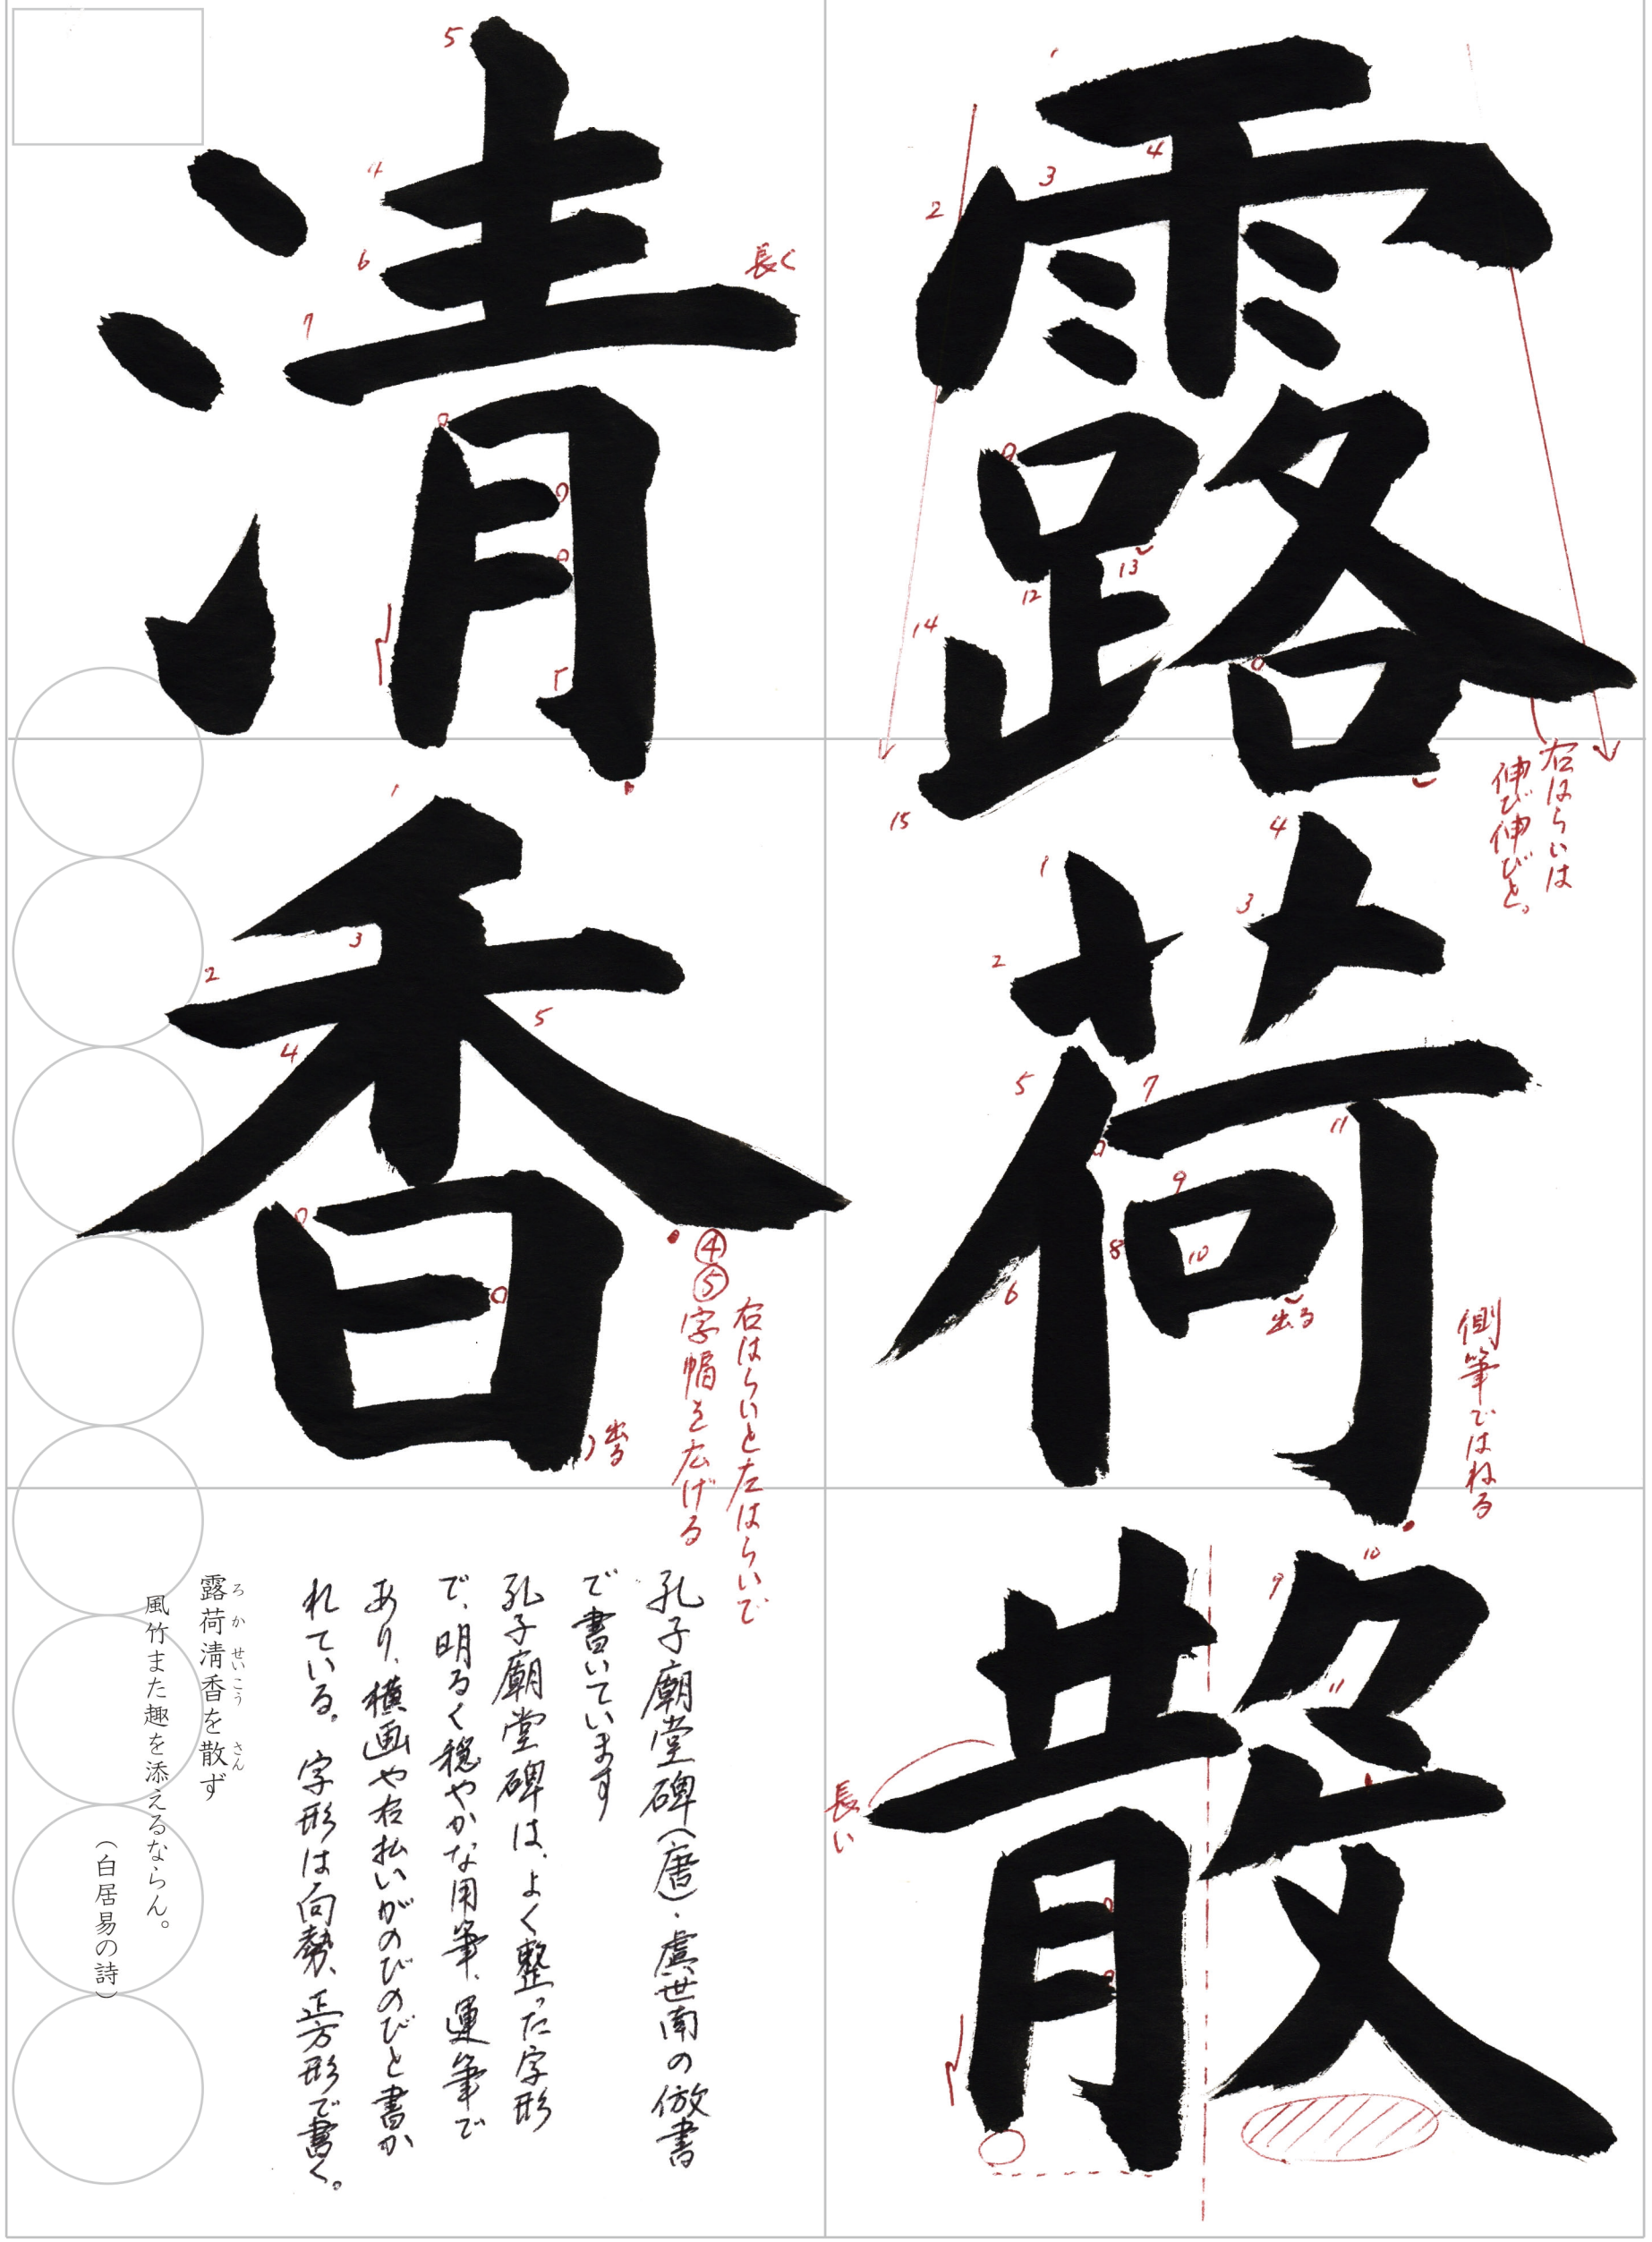 露荷散
清香
右はらいは
伸び伸びと。
側筆ではねる
出る
長い
長く
右はらいと左はらいで
④⑤字幅を広げる
出る
孔子廟堂碑(唐)・虞世南の倣書
で書いています
孔子廟堂碑は、よく整った字形
で、明るく穏やかな用筆、運筆で
あり、横画や右払いがのびのびと書か
れている。字形は向勢、正方形で書く。
露荷清香を散ず
ろかせいこう さん
風竹また趣を添えるならん。
(白居易の詩)